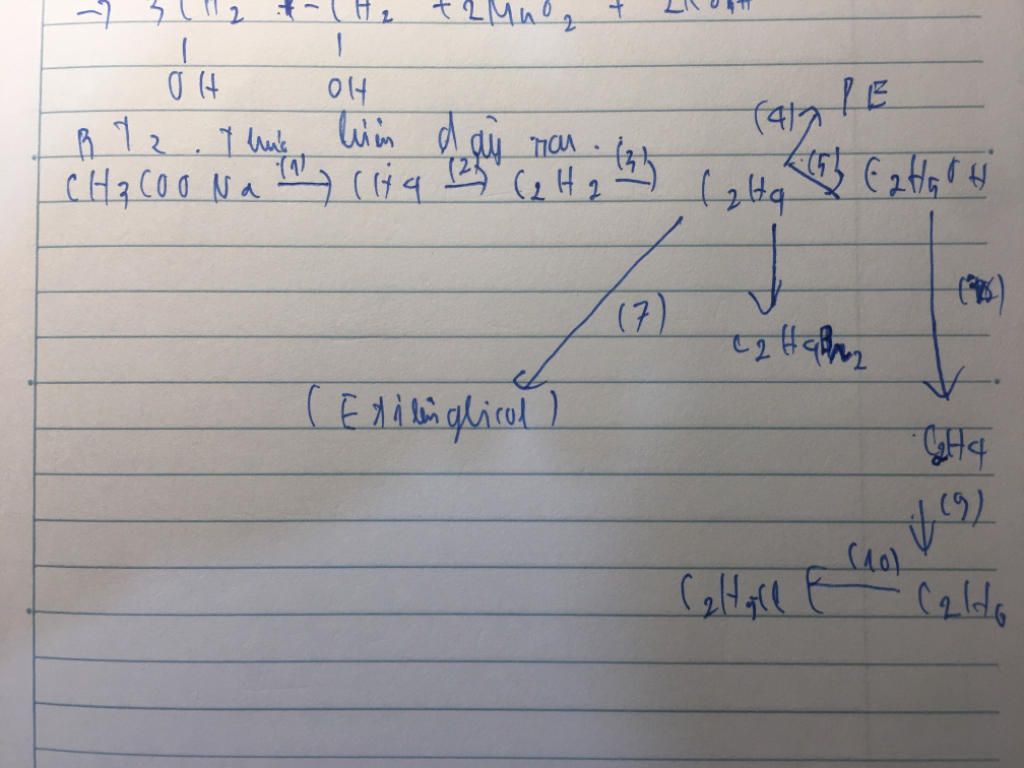 → 3CH2 - CH2 + 2MnO2 + 2KOH
OH OH
BT2. Thực hiện dãy sau.
CH3COONa (1)→ CH4 (2)→ C2H2 (3)→ C2H4 (5)→ C2H5OH
(4) PE
(7)
C2H4Br2
(Etilenglicol)
C2H4
(9)
C2H5Cl ←(10) C2H6